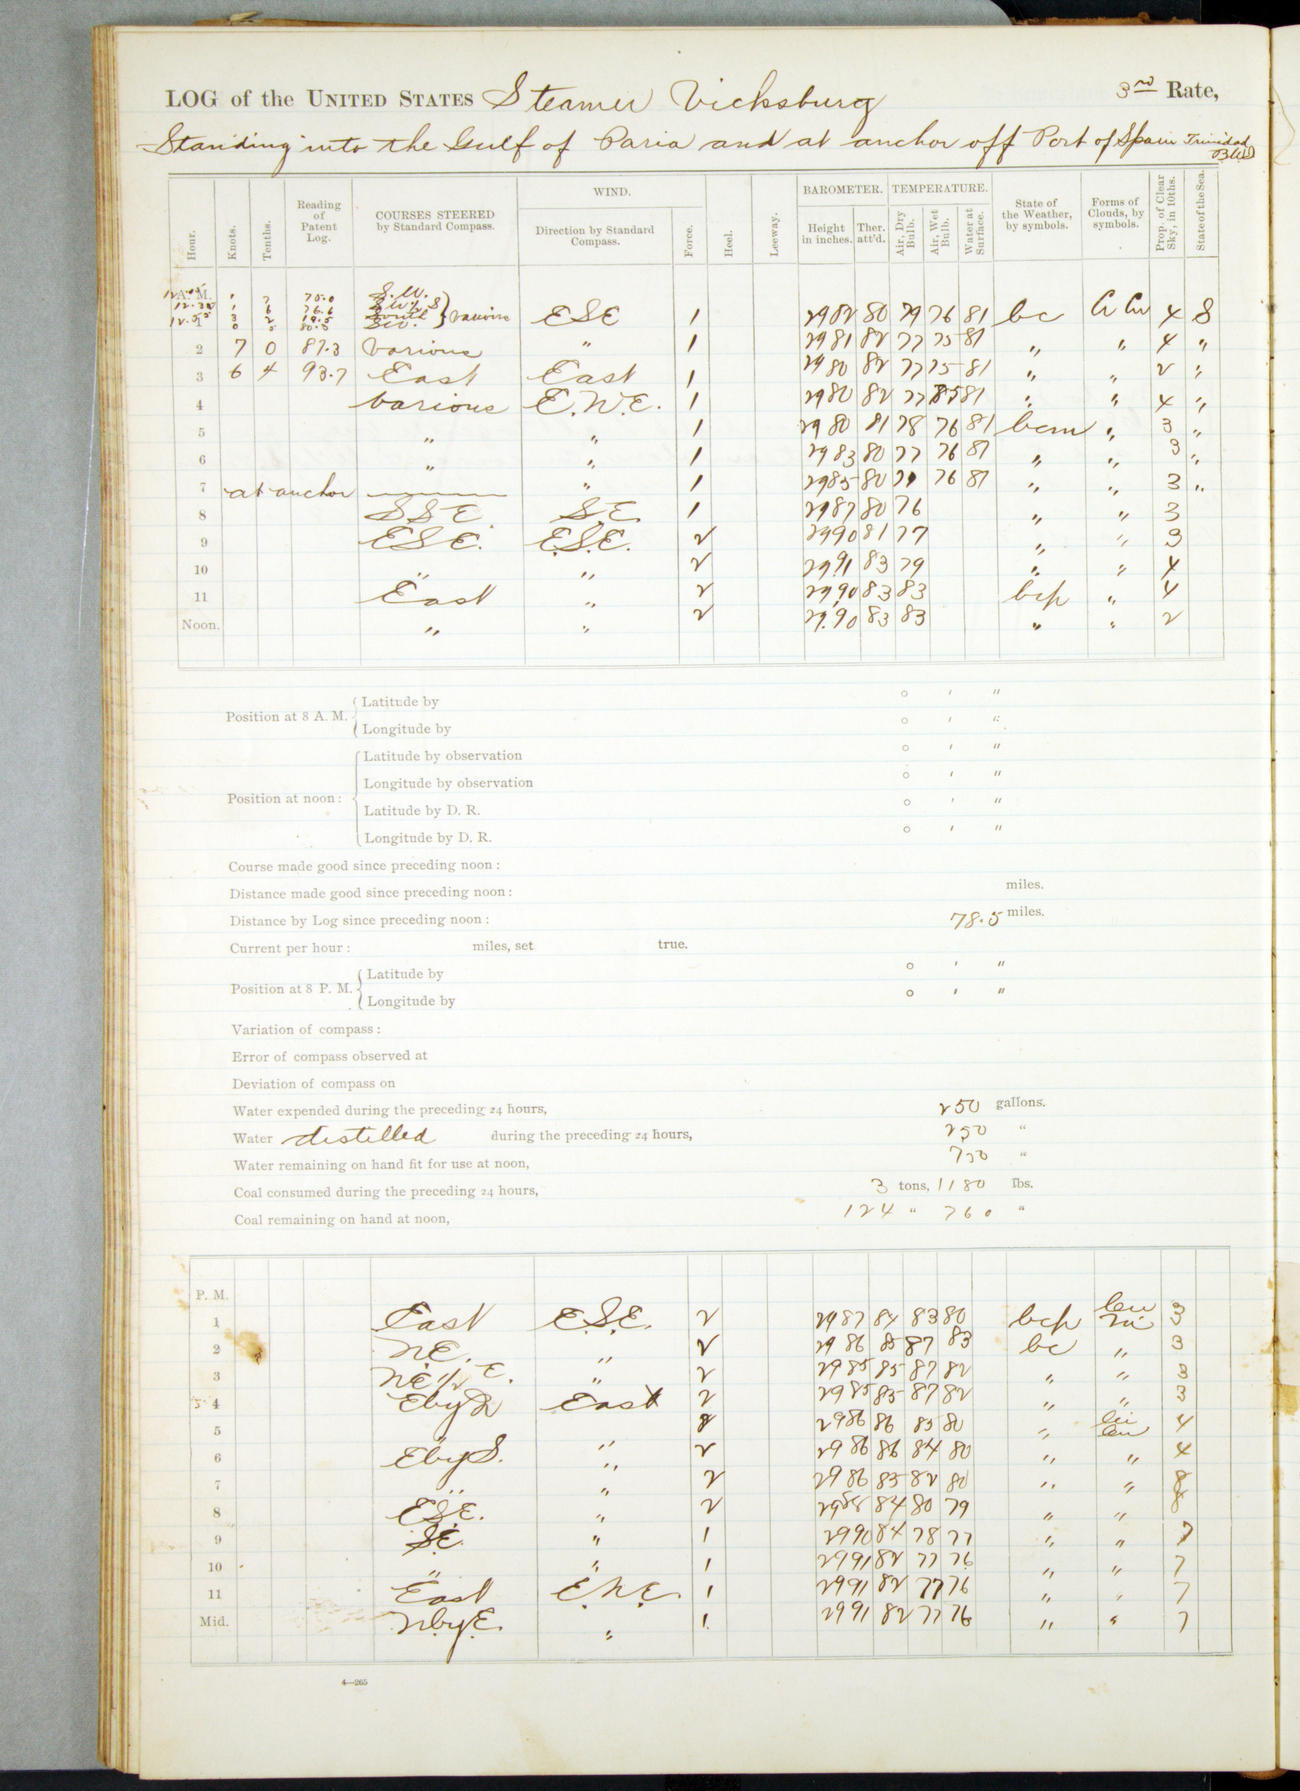 LOG of the UNITED STATES Steamer Vicksburg 3rd Rate,
Standing into the Gulf of Paria and at anchor off Port of Spain Trinidad B.W.I
Hour. Knots. Tenths. Reading of Patent Log. COURSES STEERED by Standard Compass. WIND. Direction by Standard Compass. Force. Heel. Leeway. BAROMETER. Height in inches. Ther. att'd. TEMPERATURE. Air, Dry Bulb. Air, Wet Bulb. Water at Surface. State of the Weather, by symbols. Forms of Clouds, by symbols. Prop. of Clear Sky, in 10ths. State of the Sea.
A. M. S.W.
1 various ESE 1 2982 80 79 76 81 bc 4 S
2 7 0 87.3 various " 1 2981 82 77 75 81 " " 4 "
3 6 4 93.7 East East 1 2980 82 77 75 81 " " 2 "
4 various E.N.E. 1 2980 82 77 81 " " 4 "
5 " " 1 2980 81 78 76 81 bcm " 3 "
6 " " 1 2983 80 77 76 81 " " 3 "
7 at anchor " 1 2985 80 76 81 " " 3 "
8 SSE SE 1 2987 80 76 " " 3
9 ESE. E.S.E. 2 2990 81 77 " " 3
10 " " 2 29.91 83 79 " " 4
11 East " 2 29.90 83 83 bcp " 4
Noon. " " 2 29.90 83 83 " " 2
Position at 8 A. M. Latitude by ° ' "
Longitude by ° ' "
Position at noon: Latitude by observation ° ' "
Longitude by observation ° ' "
Latitude by D. R. ° ' "
Longitude by D. R. ° ' "
Course made good since preceding noon:
Distance made good since preceding noon: miles.
Distance by Log since preceding noon: 78.5 miles.
Current per hour: miles, set true.
Position at 8 P. M. Latitude by ° ' "
Longitude by ° ' "
Variation of compass:
Error of compass observed at
Deviation of compass on
Water expended during the preceding 24 hours, 250 gallons.
Water distilled during the preceding 24 hours, 250 "
Water remaining on hand fit for use at noon, "
Coal consumed during the preceding 24 hours, 3 tons, 1180 lbs.
Coal remaining on hand at noon, 124 " 760 "
P. M.
1 East E.S.E. 2 2987 84 83 80 bcp 3
2 NE. " 2 2986 85 87 83 bc " 3
3 " 2 2985 85 87 82 " " 3
4 East 2 2985 85 87 82 " " 3
5 " " 2 2986 86 83 80 " 4
6 E by S. " 2 2986 86 84 80 " " 4
7 " " 2 2986 85 82 80 " " 8
8 ESE. " 2 84 80 79 " " 8
9 SE. " 1 2990 84 78 77 " " 7
10 " " 1 2991 82 77 76 " " 7
11 East E.N.E. 1 2991 82 77 76 " " 7
Mid. N.byE. " 1 2991 82 77 76 " " 7
4—265